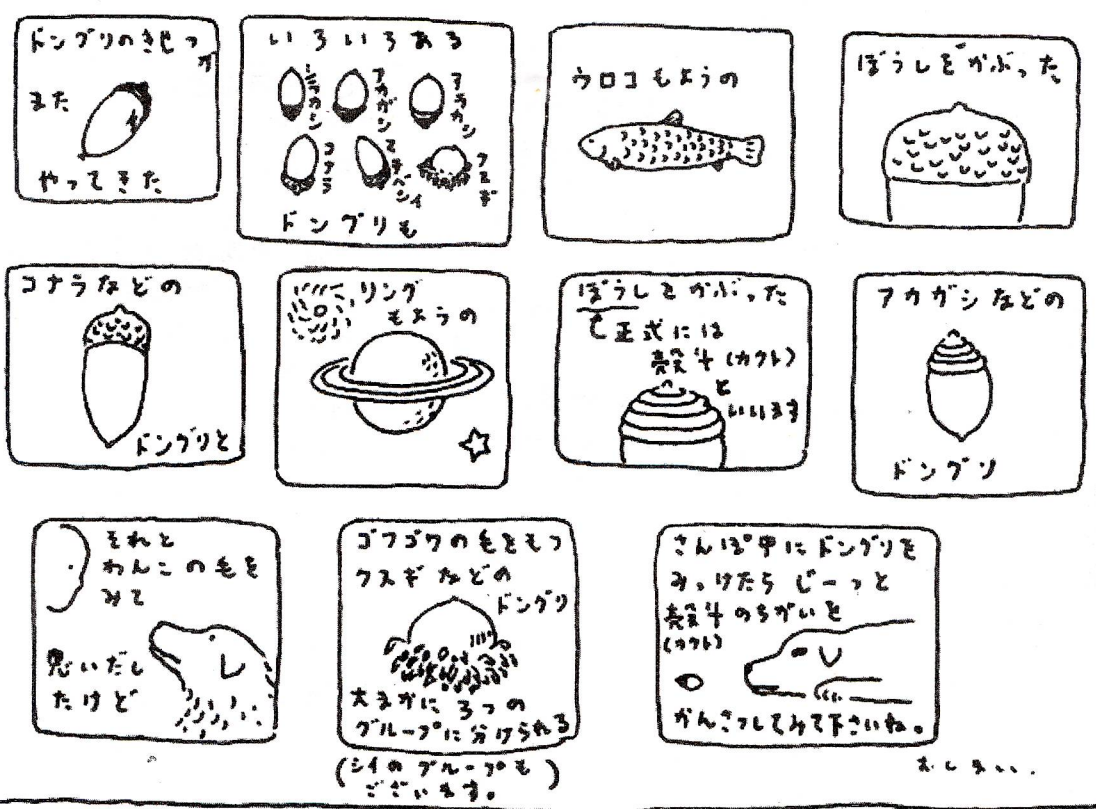 ドングリのきせつが
また
やってきた
いろいろある
シラカシ
アカガシ
アラカシ
コナラ
マテバシイ
クヌギ
ドングリも
ウロコもようの
ぼうしをかぶった
コナラなどの
ドングリと
リング
もようの
ぼうしをかぶった
正式には
殻斗(カクト)
と
いいます
アカガシなどの
ドングリ
それと
わんこの毛を
みて
思いだし
たけど
ゴワゴワの毛をもつ
クヌギなどの
ドングリ
大まかに3つの
グループに分けられる
(シイのグループも
ございます。)
さんぽ中にドングリを
みつけたらじーっと
殻斗のちがいを
(カクト)
かんさつしてみて下さいね。
おしまい.